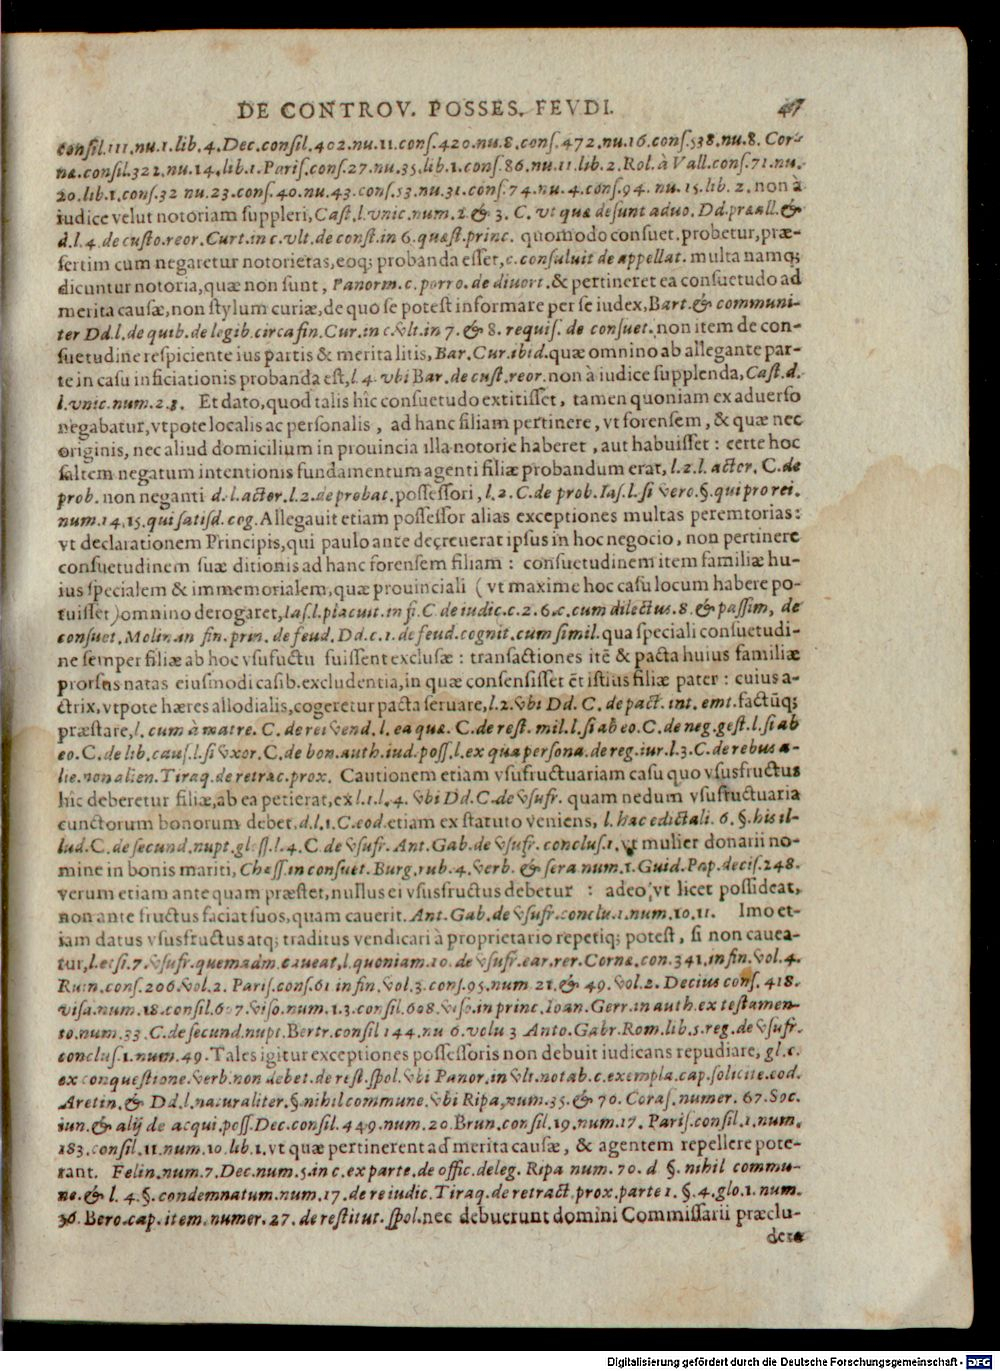 DE CONTROV. POSSES. FEVDI. 47
consil. 111. nu. 1. lib. 4. Dec. consil. 402. nu. 11. cons. 420. nu. 8. cons. 472. nu. 16. cons. 538. nu. 8. Cor-
ne. consil. 322. nu. 14. lib. 1. Paris. cons. 27. nu. 35. lib. 1. cons. 86. nu. 11. lib. 2. Rol. à Vall. cons. 71. nu.
20. lib. 1. cons. 32 nu. 23. cons. 40. nu. 43. cons. 53. nu. 31. cons. 74. nu. 4. cons. 94. nu. 15. lib. 2. non à
iudice velut notoriam suppleri, Cast. l. vnic. num. 2 & 3. C. vt quæ desunt aduo. Dd. præall. &
d. l. 4. de custo. reor. Curt. in c. vlt. de const. in 6. quæst. princ. quomodo consuet. probetur, præ-
sertim cum negaretur notorietas, eoq; probanda esset, c. consuluit de appellat. multa namq;
dicuntur notoria, quæ non sunt, Panorm. c. porro. de diuort. & pertineret ea consuetudo ad
merita causæ, non stylum curiæ, de quo se potest informare per se iudex, Bart. & communi-
ter Dd. l. de quib. de legib. circa fin. Cur. in c. vlt. in 7. & 8. requis. de consuet. non item de con-
suetudine respiciente ius partis & merita litis, Bar. Cur. ibid. quæ omnino ab allegante par-
te in casu inficiationis probanda est, l. 4. vbi Bar. de cust. reor. non à iudice supplenda, Cast. d.
l. vnic. num. 2. 3. Et dato, quod talis hîc consuetudo extitisset, tamen quoniam ex aduerso
negabatur, vtpote localis ac personalis, ad hanc filiam pertinere, vt forensem, & quæ nec
originis, nec aliud domicilium in prouincia illa notorie haberet, aut habuisset: certe hoc
saltem negatum intentionis fundamentum agenti filiæ probandum erat, l. 2. l. actor. C. de
prob. non neganti d. l. actor. l. 2. de probat. possessori, l. 2. C. de prob. Ias. l. si vero. §. qui pro rei.
num. 14. 15. qui satisd. cog. Allegauit etiam possessor alias exceptiones multas peremtorias:
vt declarationem Principis, qui paulo ante decreuerat ipsus in hoc negocio, non pertinere
consuetudinem suæ ditionis ad hanc forensem filiam: consuetudinem item familiæ hu-
ius specialem & immemorialem, quæ prouinciali (vt maxime hoc casu locum habere po-
tuisset) omnino derogaret, Ias. l. placuit. in fi. C de iudic. c. 2. 6. c. cum dilectus. 8. & passim, de
consuet. Molin. in fin. prin. de feud. Dd. c. 1. de feud. cognit. cum simil. qua speciali consuetudi-
ne semper filiæ ab hoc vsufructu fuissent exclusæ: transactiones itē & pacta huius familiæ
prorsus natas eiusmodi casib. excludentia, in quæ consensisset et istius filiæ pater: cuius a-
ctrix, vtpote hæres allodialis, cogeretur pacta seruare, l. 2. vbi Dd. C. de pact. int. emt. factūq;
præstare, l. cum à matre. C. de rei vend. l. ea quæ. C. de rest. mil. l. si ab eo. C. de neg. gest. l. si ab
eo. C. de lib. caus. l. si vxor. C. de bon. auth. iud. poss. l. ex qua persona. de reg. iur. l. 3. C. de rebus a-
lie. non alien. Tiraq. de retrac. prox. Cautionem etiam vsufructuariam casu quo vsusfructus
hîc deberetur filiæ, ab ea petierat, ex l. 1. l. 4. vbi Dd. C. de vsufr. quam nedum vsufructuaria
cunctorum bonorum debet. d. l. 1. C. eod. etiam ex statuto veniens, l. hac edictali. 6. §. his il-
lud. C. de secund. nupt. gloss. l. 4. C. de vsufr. Ant. Gab. de vsufr. conclus. 1. vt mulier donarii no-
mine in bonis mariti, Chass. in consuet. Burg. rub. 4. verb. & sera num. 1. Guid. Pap. decis. 248.
verum etiam antequam præstet, nullus ei vsusfructus debetur: adeo, vt licet possideat,
non ante fructus faciat suos, quam cauerit. Ant. Gab. de vsufr. conclu. 1. num. 10. 11. Imo et-
iam datus vsusfructus atq; traditus vendicari à proprietario repetiq; potest, si non cauea-
tur, l. etsi. 7. vsufr. quemadm. caueat, l. quoniam. 10. de vsufr. ear. rer. Corne. con. 341. in fin. vol. 4.
Ruin. cons. 206. vol. 2. Paris. cons. 61 in fin. vol. 3. cons. 95. num 21. & 49. vol. 2. Decius cons. 418.
visa. num. 18. consil. 607. viso. num. 1. 3. consil. 608. viso. in princ. Ioan. Gerr. in auth. ex testamen-
to. num. 33. C. de secund. nupt. Bertr. consil 144. nu 6. volu 3 Anto. Gabr. Rom. lib. 5. reg. de vsufr.
conclus. 1. num. 49. Tales igitur exceptiones possessoris non debuit iudicans repudiare, gl. c.
ex conquestione. verb. non debet. de rest. spol. vbi Panor. in vlt. notab. c. exempla. cap. solicite. eod.
Aretin. & Dd. l. naturaliter. §. nihil commune. vbi Ripa, num. 35. & 70. Coras. numer. 67. Soc.
iun. & alij de acqui. poss. Dec. consil. 449. num. 20. Brun. consil. 19. num. 17. Paris. consil. 1. num.
183. consil. 11. num. 10. lib. 1. vt quæ pertinerent ad merita causæ, & agentem repellere pote-
rant. Felin. num. 7. Dec. num. 5. in c. ex parte. de offic. deleg. Ripa num. 70. d §. nihil commu-
ne. & l. 4. §. condemnatum. num. 17. de re iudic. Tiraq. de retract. prox. parte 1. §. 4. glo. 1. num.
36. Bero. cap. item. numer. 27. de restitut. spol. nec debuerunt domini Commissarii præclu-
dere
Digitalisierung gefördert durch die Deutsche Forschungsgemeinschaft - DFG